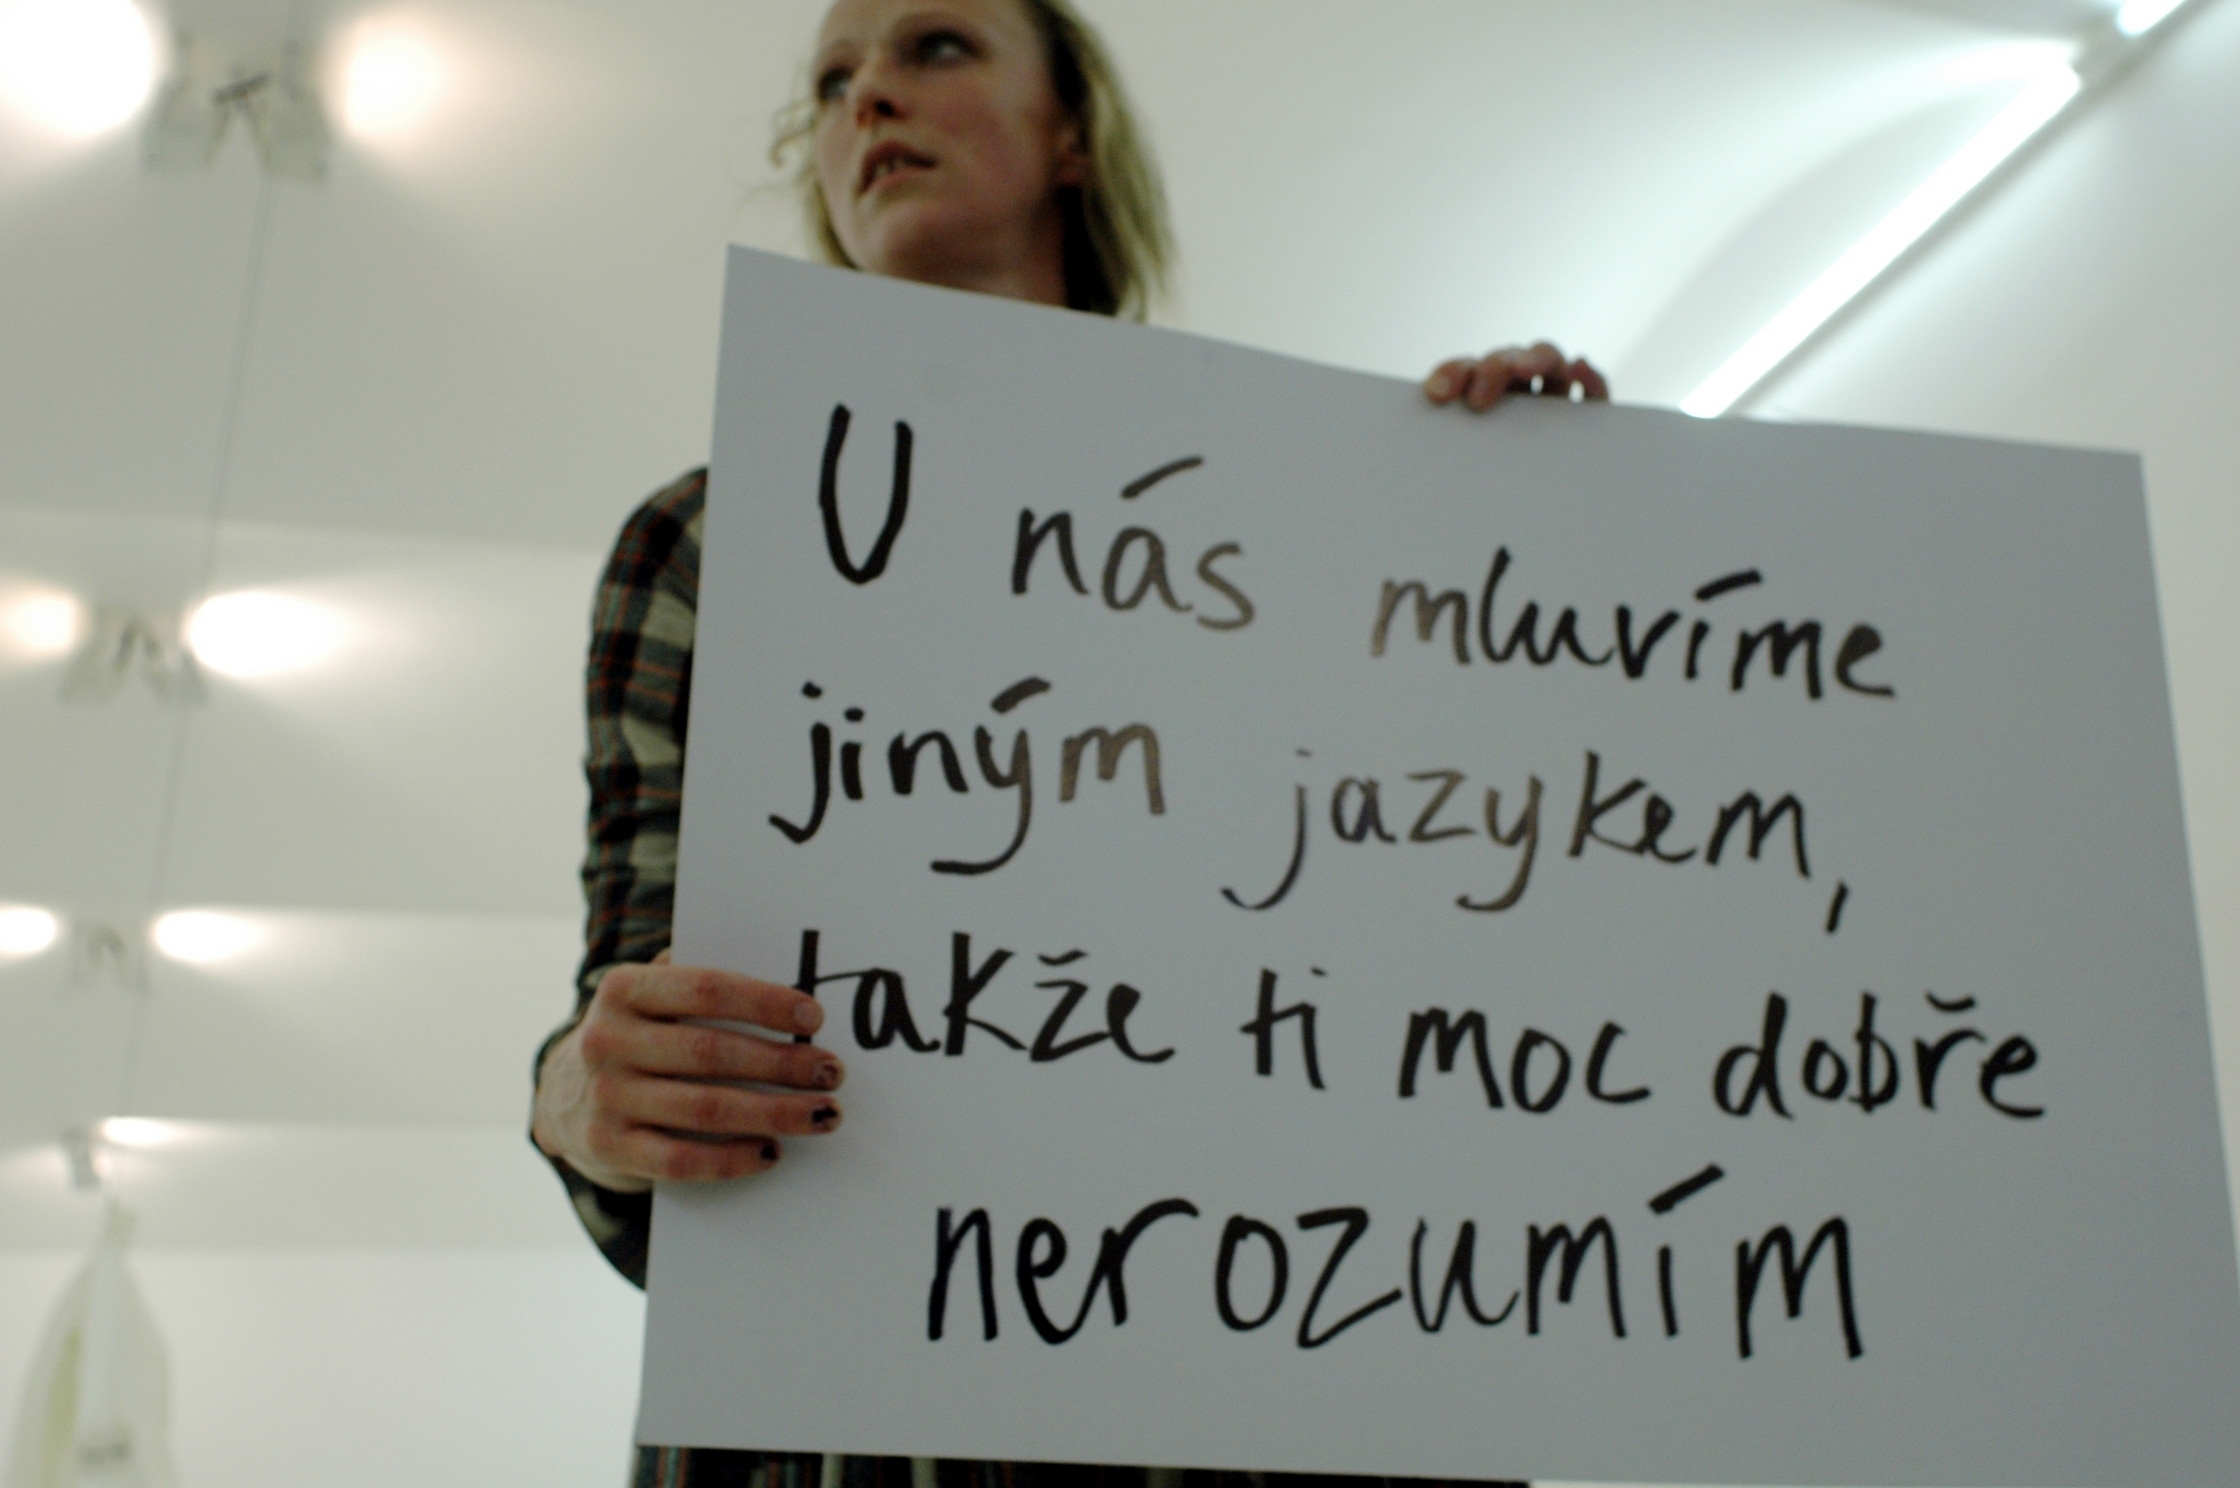 U nás mluvíme
jiným jazykem,
takže ti moc dobře
nerozumím